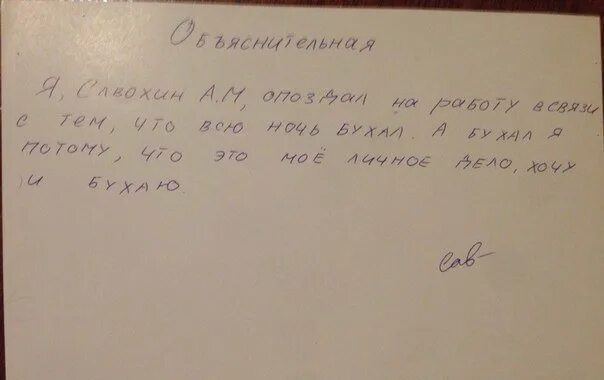 Объяснительная
Я, Савохин А.М, опоздал на работу в связи
с тем, что всю ночь бухал. А бухал я
потому, что это моё личное дело, хочу
и бухаю.
Сав